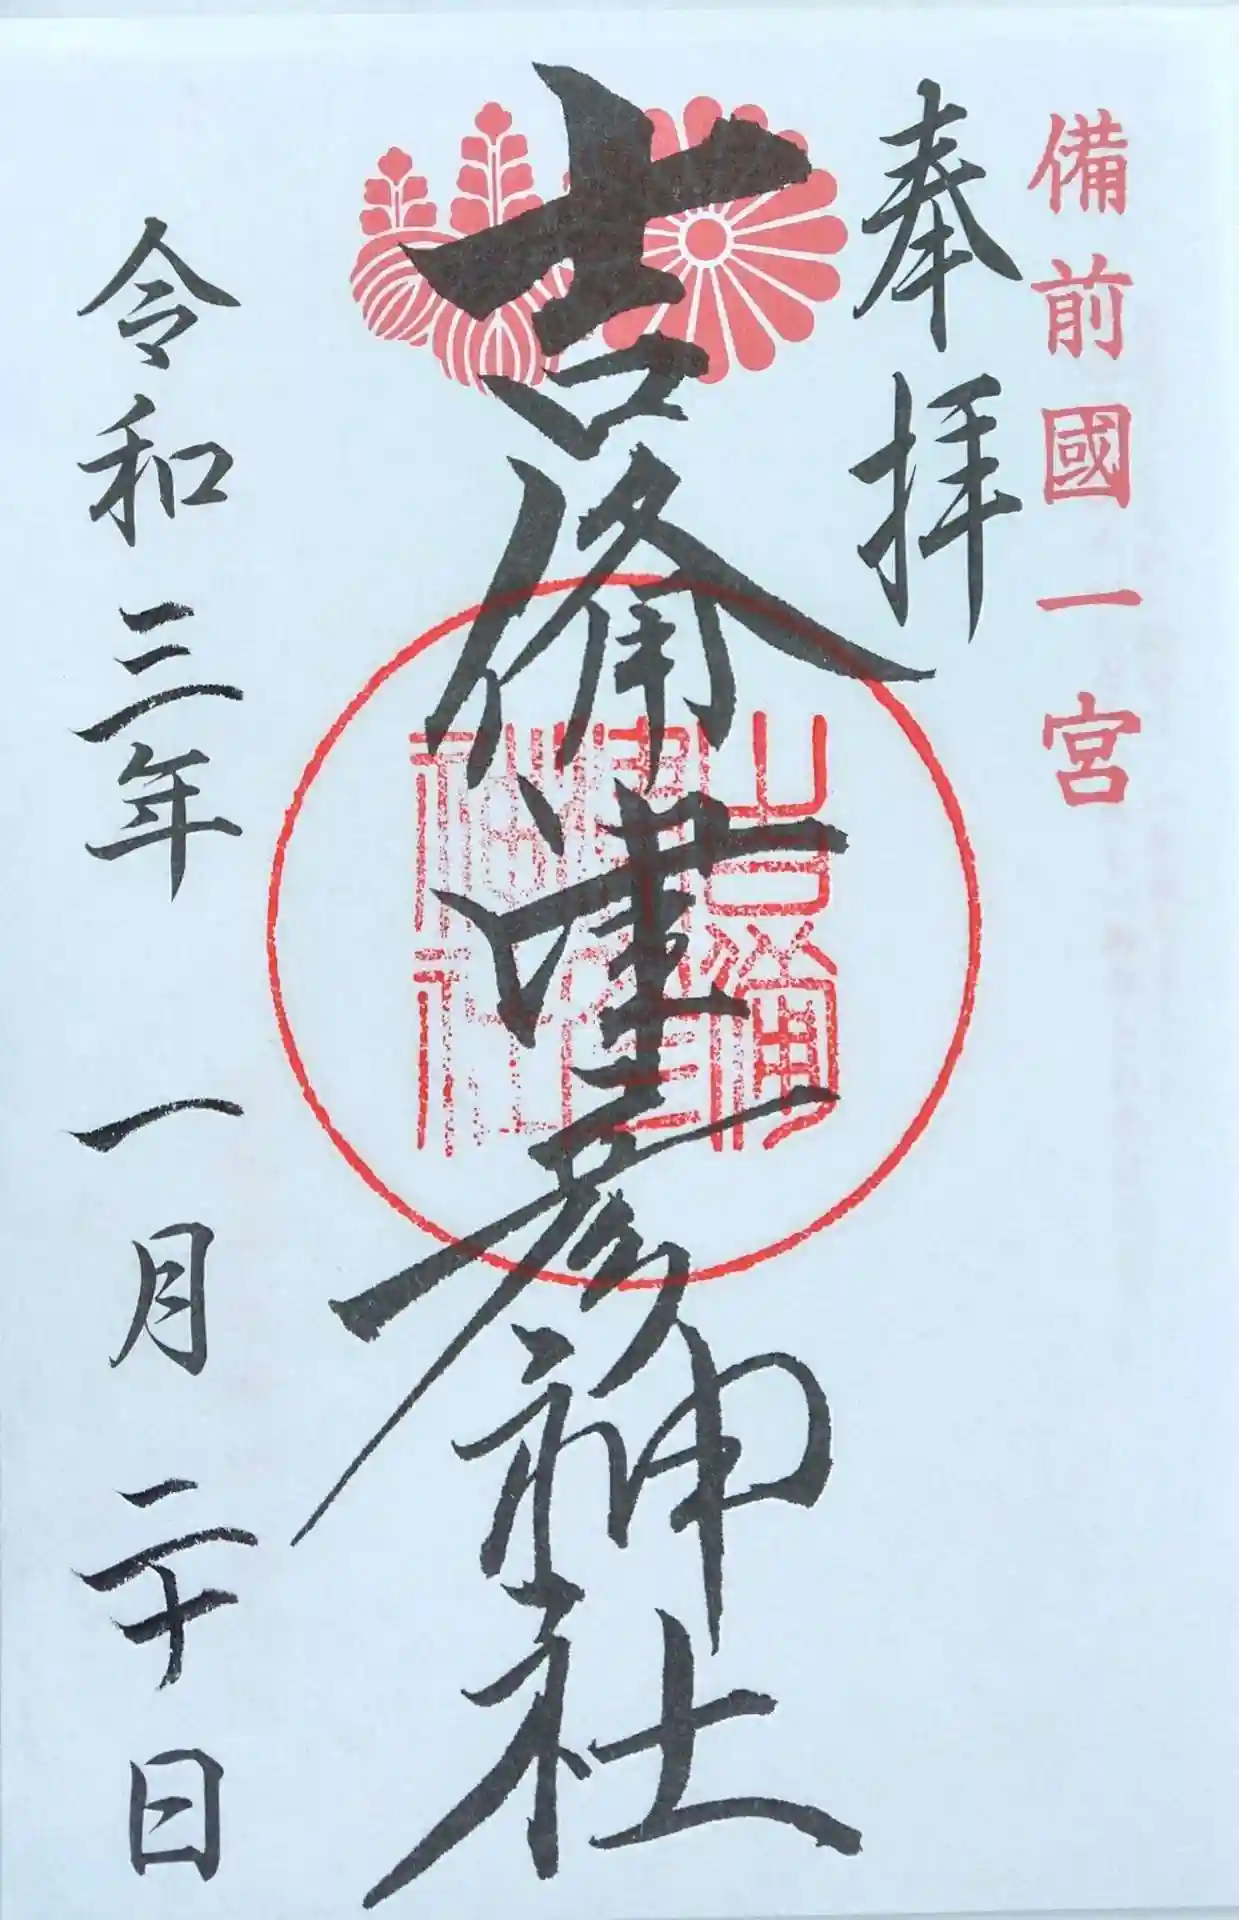 備前國一宮
奉拝
吉備津彦神社
吉備
津彦
神社
令和三年 一月 二十日